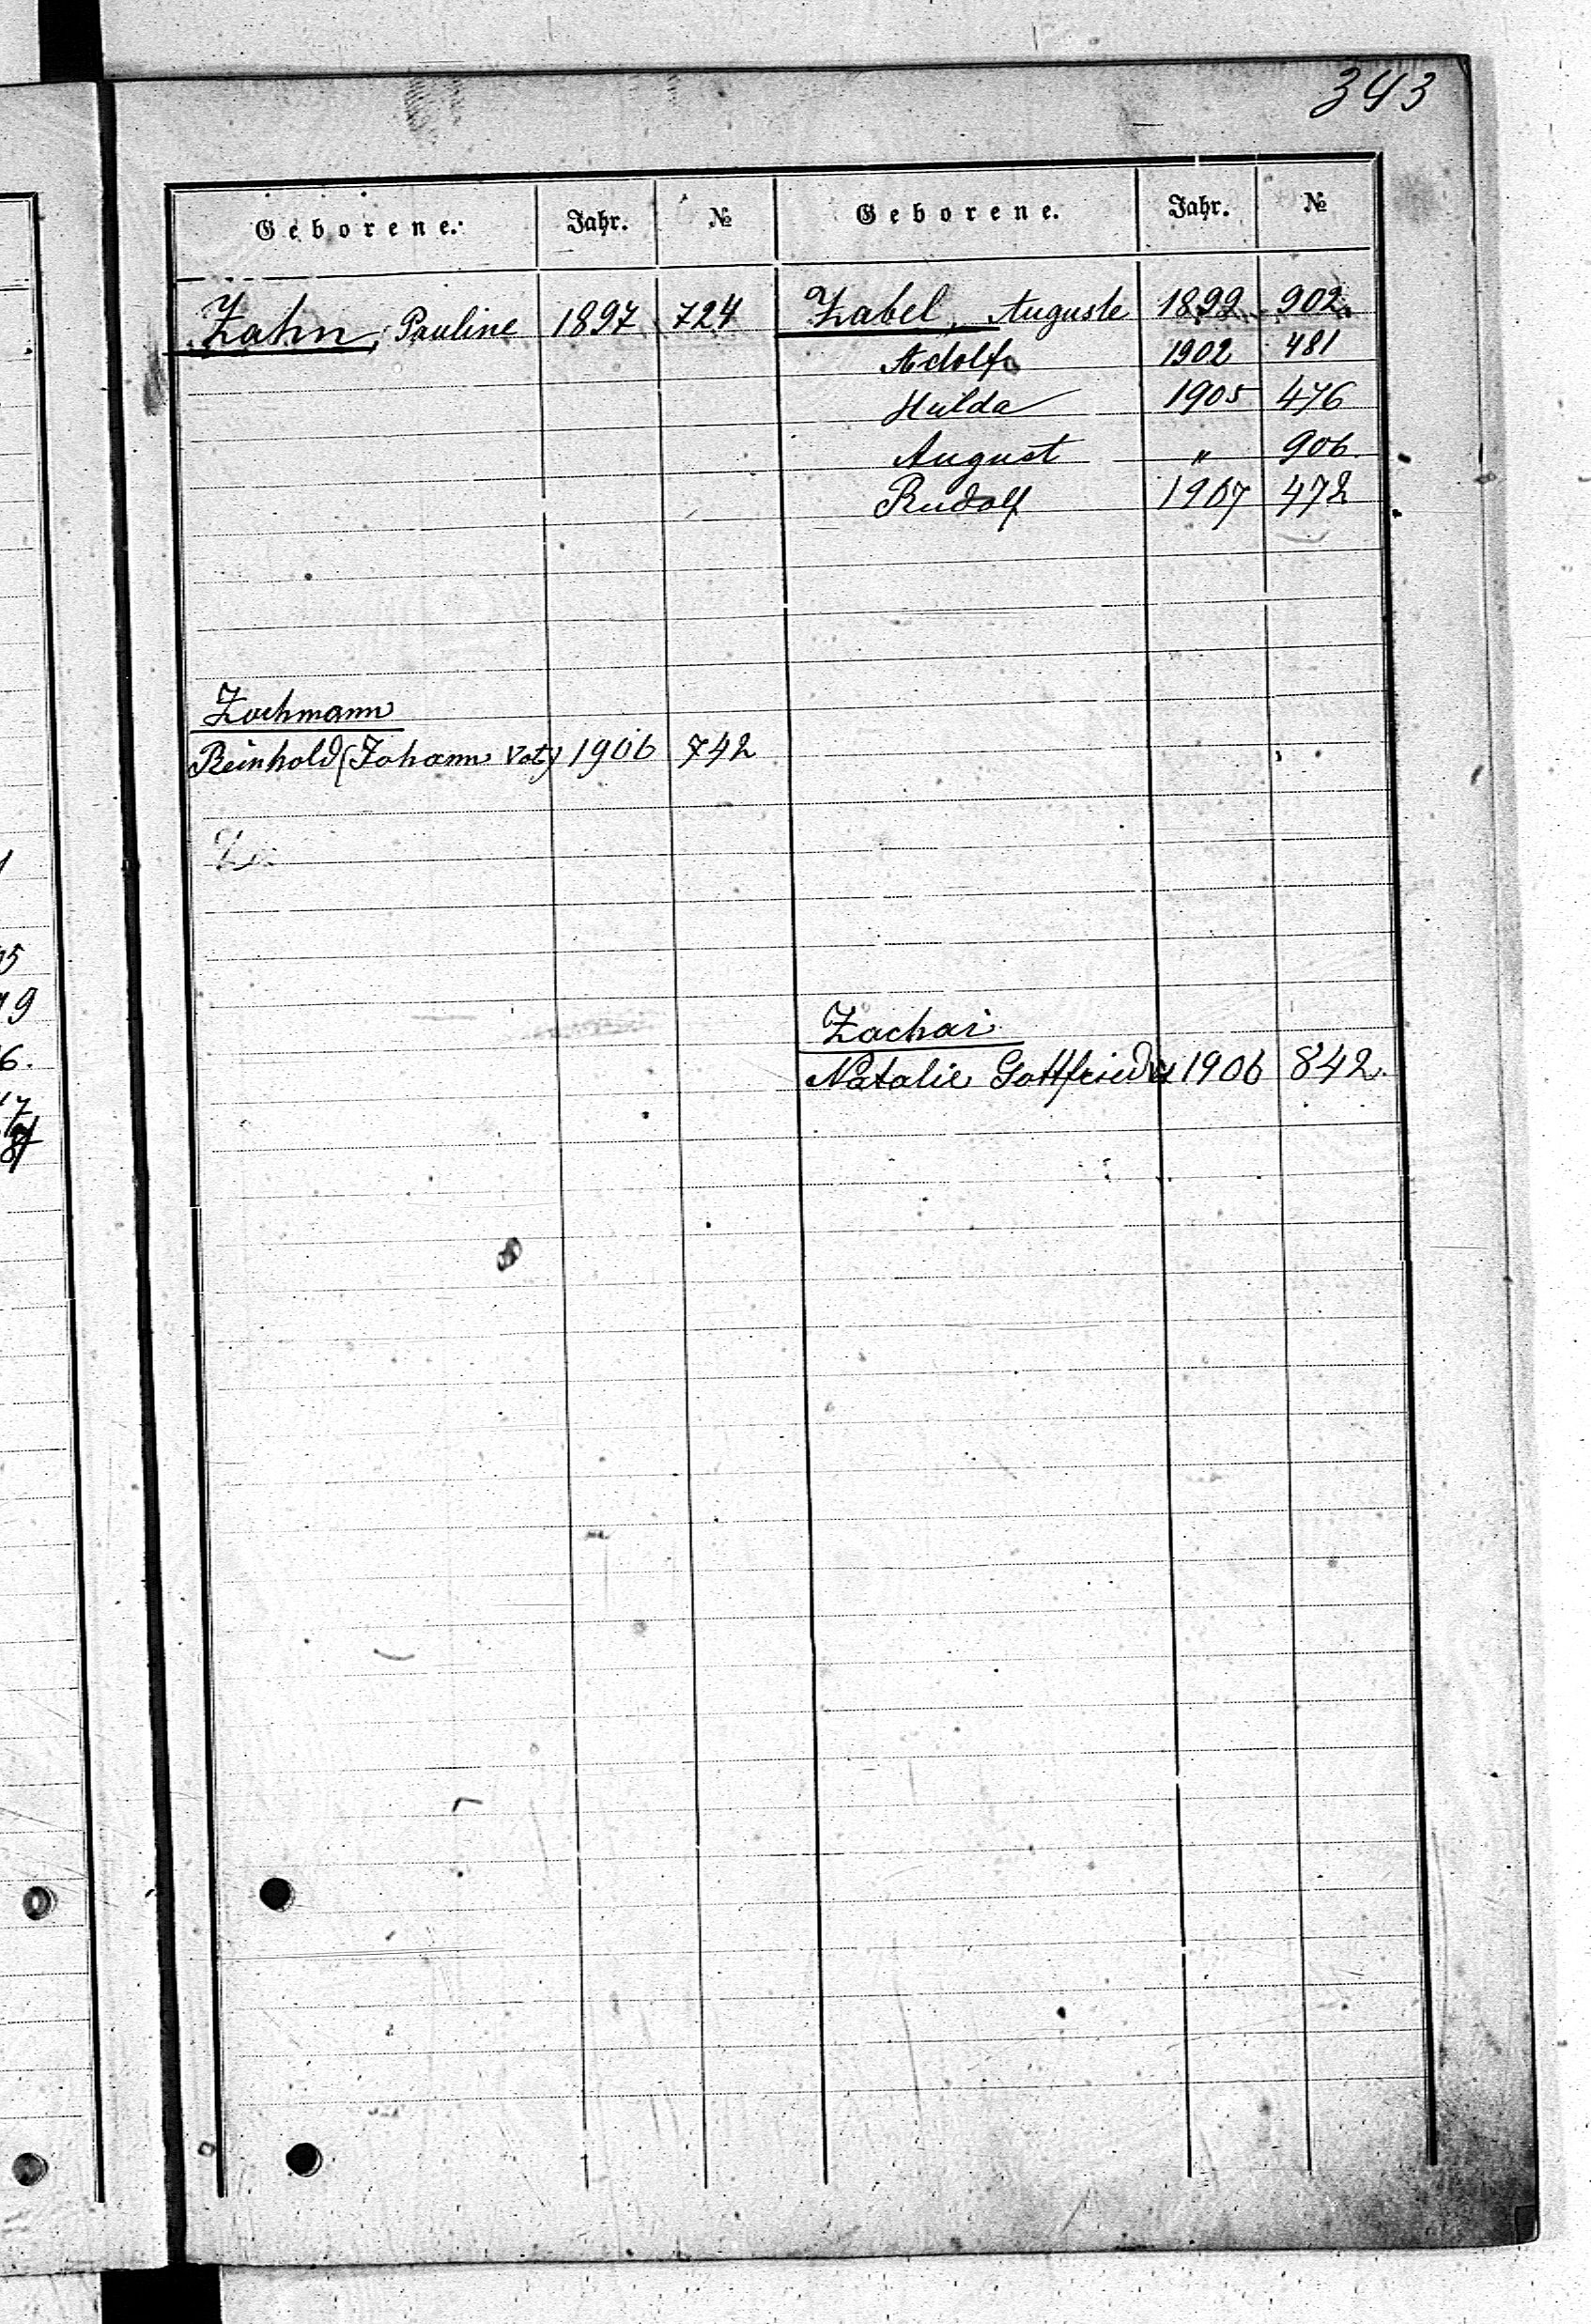 343
Geborene. Jahr. № Geborene. Jahr. №
Zahn, Pauline 1897 724
Zabel, Auguste 1899 902
Adolf 1902 481
Hulda 1905 476
August " 906
Rudolf 1907 472
Zochmann
Reinhold (Johann Vat) 1906 742
Zachai
Natalie Gottfried 1906 842.